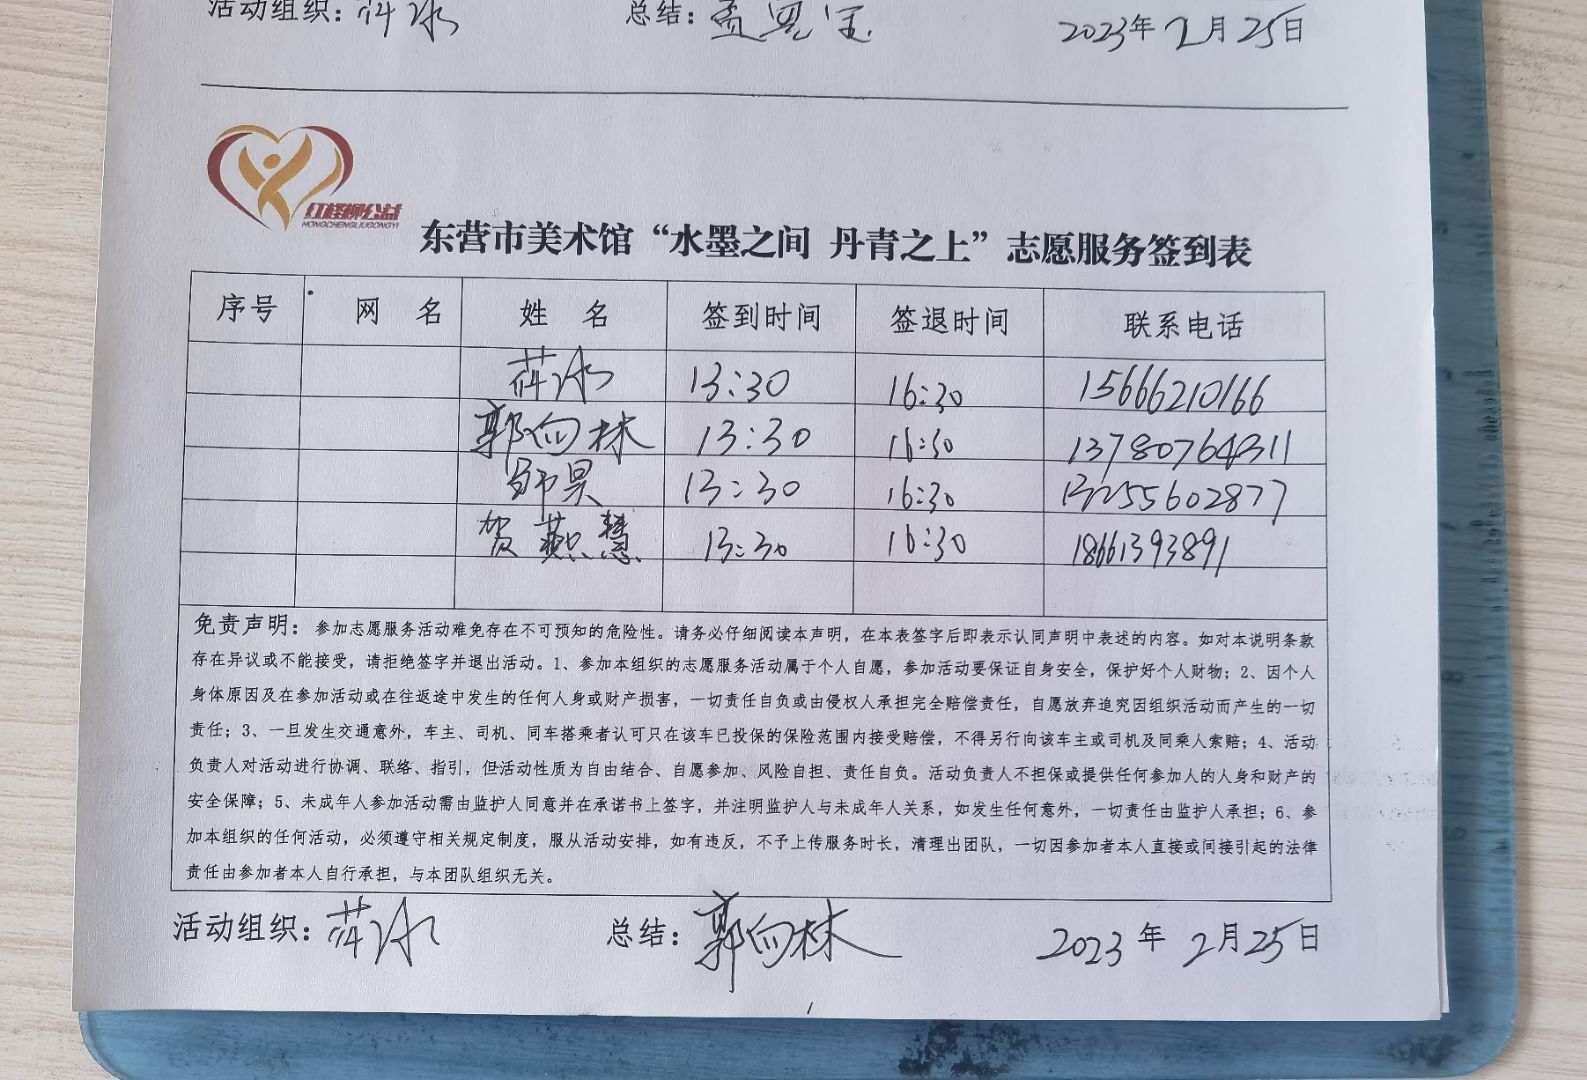 活动组织：
总结：
2023年2月25日
红柽柳公益
HONGCHENGLIUGONGYI
东营市美术馆“水墨之间 丹青之上”志愿服务签到表
序号 网 名 姓 名 签到时间 签退时间 联系电话
13:30 16:30 15666210166
郭向林 13:30 16:30 13780764311
邹昊 13:30 16:30 13255602877
贺燕慧 13:30 16:30 18661393891
免责声明：参加志愿服务活动难免存在不可预知的危险性。请务必仔细阅读本声明，在本表签字后即表示认同声明中表述的内容。如对本说明条款
存在异议或不能接受，请拒绝签字并退出活动。1、参加本组织的志愿服务活动属于个人自愿，参加活动要保证自身安全，保护好个人财物；2、因个人
身体原因及在参加活动或在往返途中发生的任何人身或财产损害，一切责任自负或由侵权人承担完全赔偿责任，自愿放弃追究因组织活动而产生的一切
责任；3、一旦发生交通意外，车主、司机、同车搭乘者认可只在该车已投保的保险范围内接受赔偿，不得另行向该车主或司机及同乘人索赔；4、活动
负责人对活动进行协调、联络、指引，但活动性质为自由结合、自愿参加、风险自担、责任自负。活动负责人不担保或提供任何参加人的人身和财产的
安全保障；5、未成年人参加活动需由监护人同意并在承诺书上签字，并注明监护人与未成年人关系，如发生任何意外，一切责任由监护人承担；6、参
加本组织的任何活动，必须遵守相关规定制度，服从活动安排，如有违反，不予上传服务时长，清理出团队，一切因参加者本人直接或间接引起的法律
责任由参加者本人自行承担，与本团队组织无关。
活动组织：
总结：郭向林
2023年2月25日